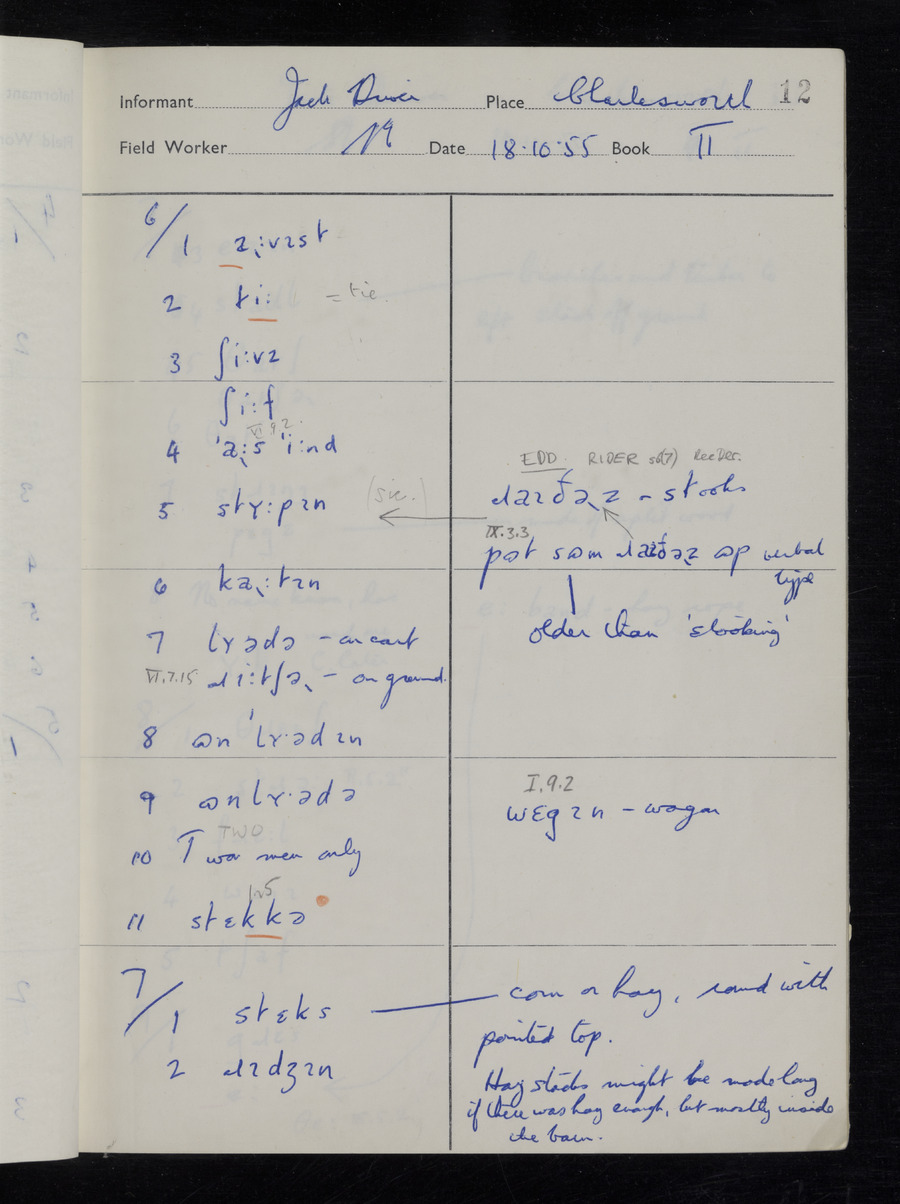 Informant Jack Place Charlesworth 12
Field Worker Date 18·10·55 Book II
6/
1 a̜:vɪst
2 ti: = tie.
3 ʃi:vz
ʃi:f
VI 9.2
4 'a̜:s 'i:nd
5 stɤ:pɪn (sic.)
6 ka̜:tɪn
7 lɤədə – on cart
VI.7.15 ɹi:tʃə̢ – on ground.
8 ɷn'lɤ·ədɪn
9 ɷnlɤ·ədə
TWO
10 Two men only
1.5
11 stɛkkə
7/
1 stɛks
2 ɹɪdʒɪn
EDD. RIDER sb(7)
ɹaɪðə̢z – stooks
IX.3.3
pɷt sɷm ɹaɪðə̢z ɷp verbal
type
older than 'stooking'
I.9.2
wɛgɪn – wagon
corn or hay, round with
pointed top.
Hay stacks might be made long
if there was hay enough, but mostly inside
the barn.